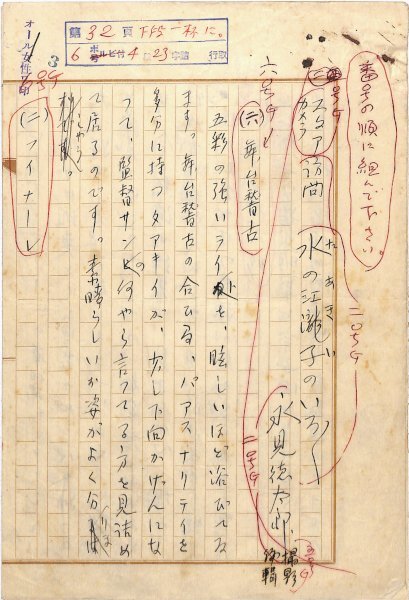 番号の順に組んで下さい。
スタア訪問
カメラ
水の江瀧子のいろ〱
たあきい
永見徳太郎
撮影
編輯
(六) 舞台稽古
五彩の強いライトを、眩しいほど浴びてゐ
ます。舞台稽古の合ひ間、パアスナリテイを
多分に持つタアキイが、少し下向かげんにな
つて、監督サンと何やら言つてる方を見詰め
て居るのです。素晴らしい姿がよく分
(二) フイナーレ
第32頁下段一杯に。
6 ポ号 ルビ付 4 23字詰 行取
オール女性
3